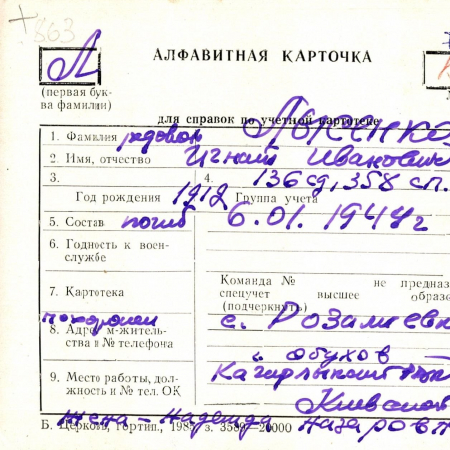 863
Л
АЛФАВИТНАЯ КАРТОЧКА
(первая бук-
ва фамилии)
для справок по учетной картотеке
1. Фамилия рядовой
2. Имя, отчество Игнат Иванович
3. 4. 136 сд, 358 сп.
Год рождения 1912 Группа учета
5. Состав погиб 6.01.1944 г
6. Годность к воен-
службе
Команда № не предназ
7. Картотека спецучет высшее образо
(подчеркнуть)
похоронен с.
8. Адрес м-житель-
ства и № телефона
Обухов
9. Место работы, дол-
жность и № тел. ОК
Жена - Надежда Назаровн
Б. Церковь, гортип., 198 з. 358 -20000